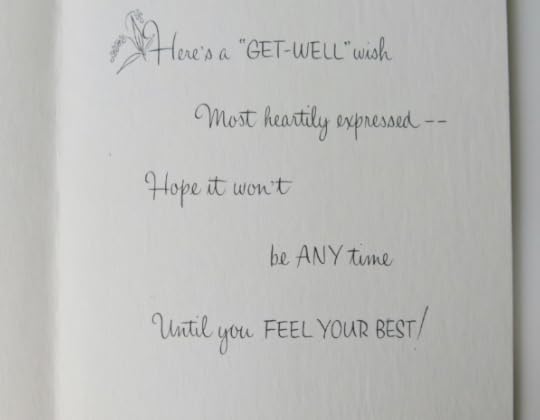 Here's a "GET-WELL" wish
Most heartily expressed--
Hope it won't
be ANY time
Until you FEEL YOUR BEST!